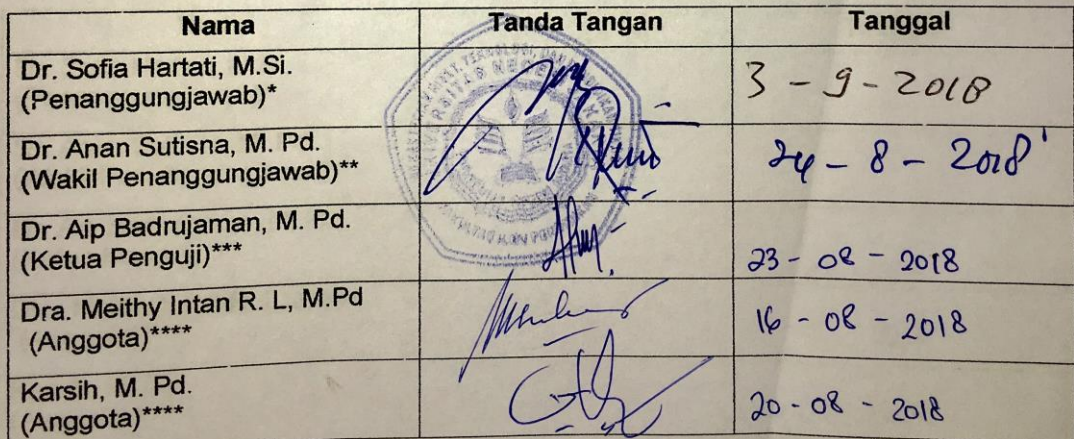 Nama Tanda Tangan Tanggal
Dr. Sofia Hartati, M.Si.
(Penanggungjawab)* 3 - 9 - 2018
Dr. Anan Sutisna, M. Pd.
(Wakil Penanggungjawab)** 24 - 8 - 2018
Dr. Aip Badrujaman, M. Pd.
(Ketua Penguji)*** 23 - 08 - 2018
Dra. Meithy Intan R. L, M.Pd
(Anggota)**** 16 - 08 - 2018
Karsih, M. Pd.
(Anggota)**** 20 - 08 - 2018